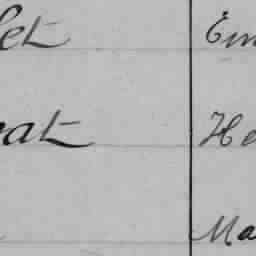 let Em
nat He
Ma